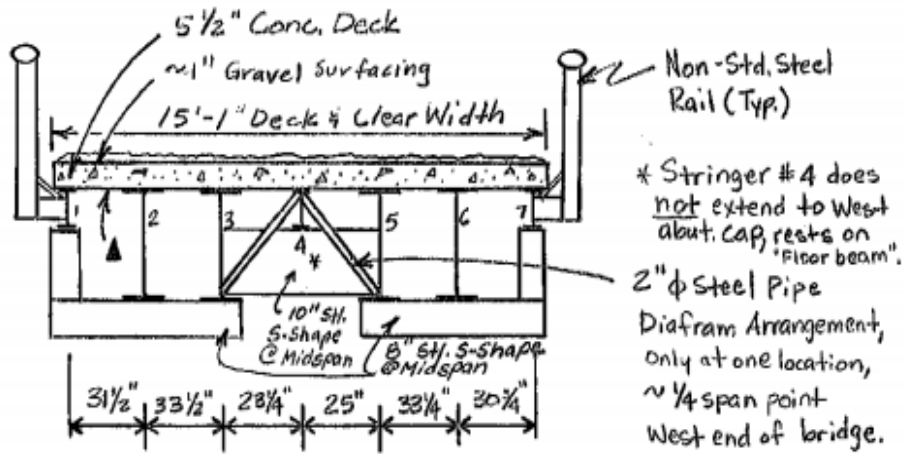 5 1/2" Conc. Deck
~1" Gravel Surfacing
15'-1" Deck & Clear Width
Non-Std. Steel
Rail (Typ.)
* Stringer #4 does
not extend to West
abut. cap, rests on
"Floor beam".
1 2 3 4 5 6 7
*
10" Stl.
S-Shape
@ Midspan
8" Stl. S-Shape
@ Midspan
2" ϕ Steel Pipe
Diafram Arrangement,
only at one location,
~ 1/4 span point
West end of bridge.
31 1/2" 33 1/2" 28 1/4" 25" 33 1/4" 30 3/4"